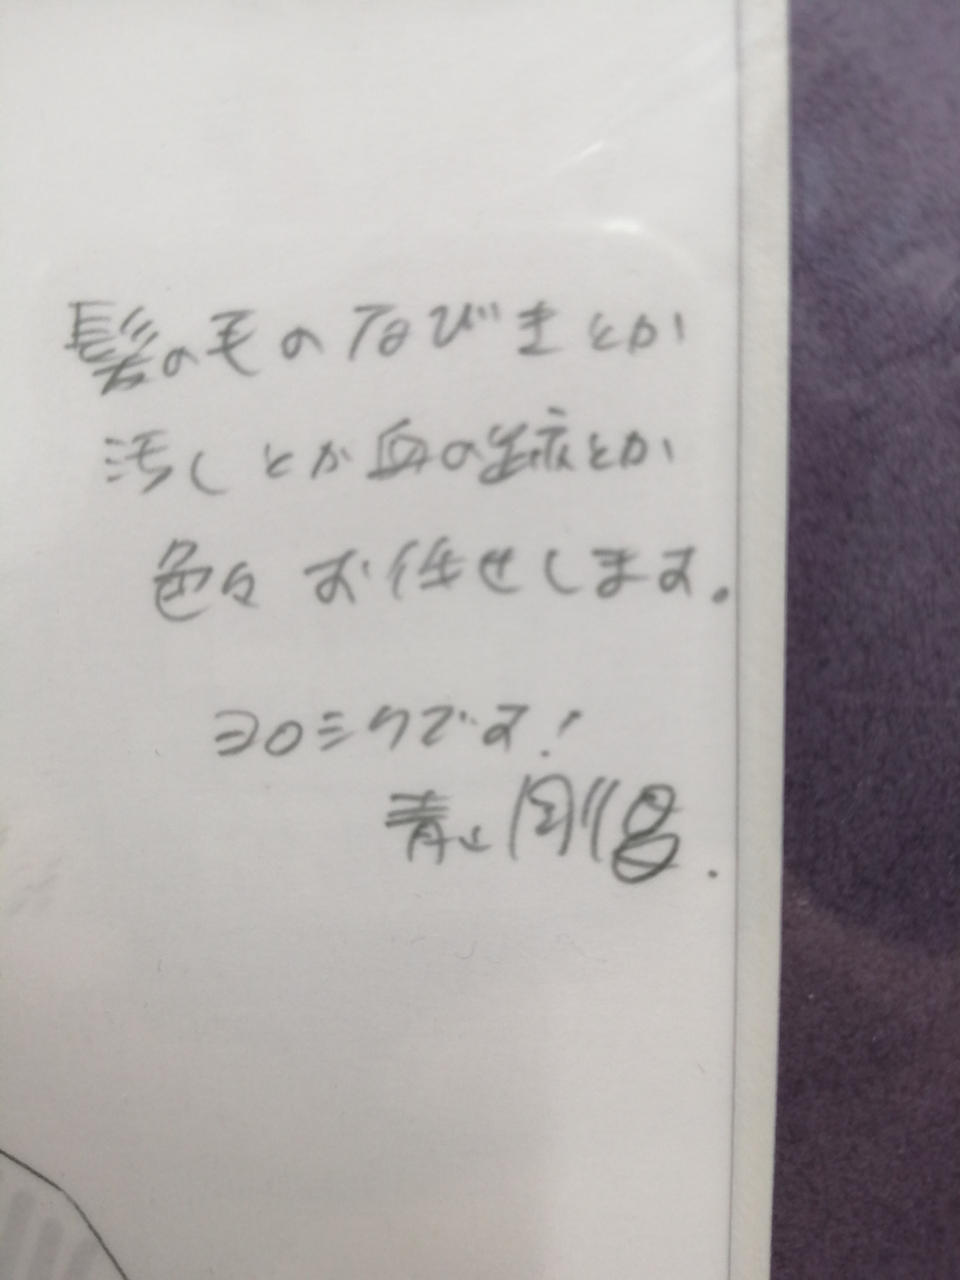 髪の毛のなびきとか
汚しとか血の痕とか
色々お任せします。
ヨロシクです!
青山剛昌.